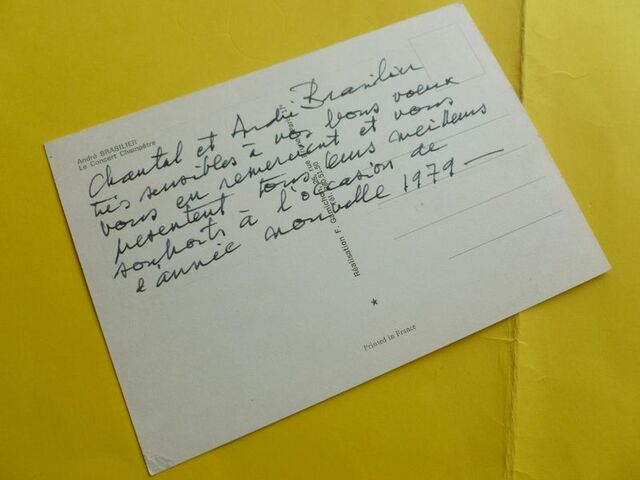 André BRASILIER
Le Concert Champêtre
Chantal et André Brasilier
très sensibles à vos bons voeux
vous en remercient et vous
présentent tous leurs meilleurs
souhaits à l'occasion de
l'année nouvelle 1979 —
Réalisation F.
Printed in France